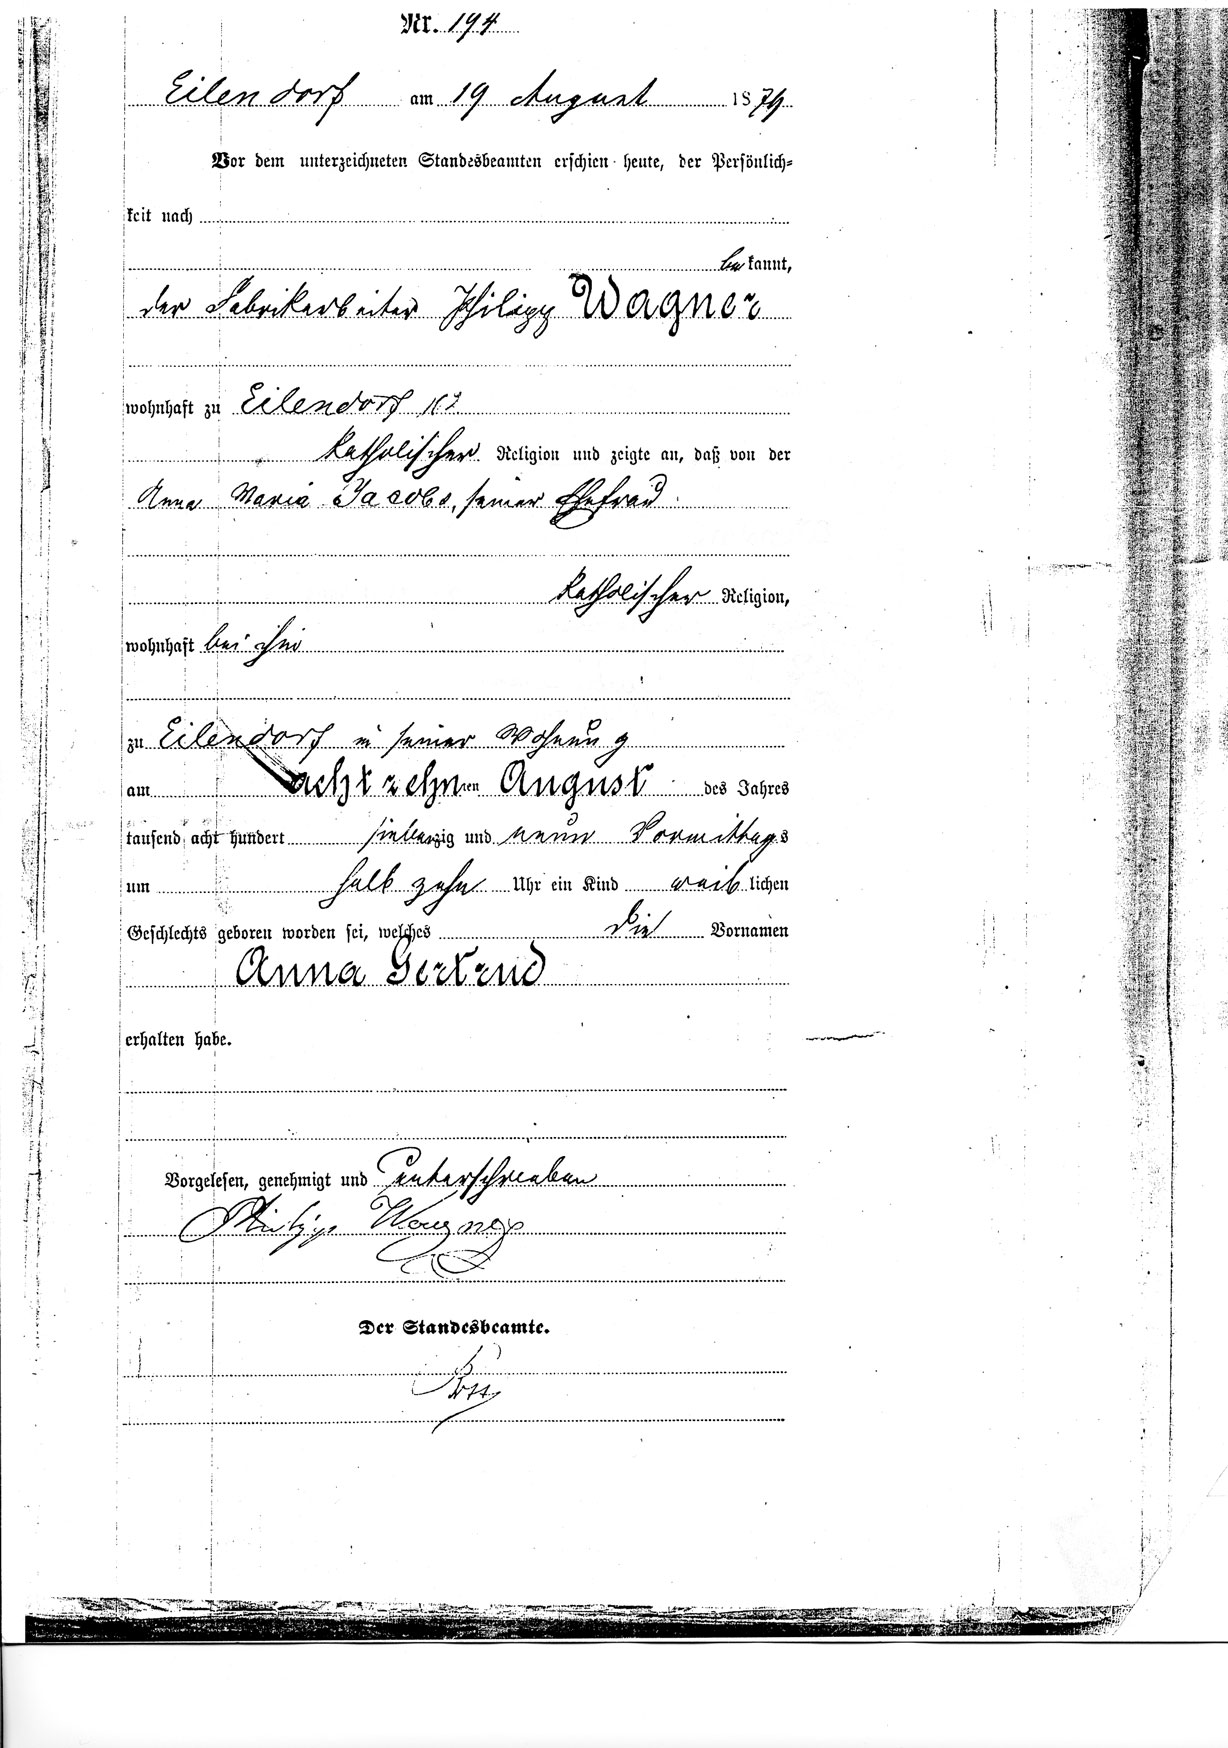 Nr. 194
Eilendorf am 19 August 1879.
Vor dem unterzeichneten Standesbeamten erschien heute, der Persönlich-
keit nach
bekannt,
der Fabrikarbeiter Philipp Wagner
wohnhaft zu Eilendorf
katholischer Religion und zeigte an, daß von der
Anna Maria Jacobs, seiner Ehefrau
katholischer Religion,
wohnhaft bei ihm
zu Eilendorf in seiner Wohnung
am achtzehnten August des Jahres
tausend acht hundert siebenzig und neun Vormittags
um halb zehn Uhr ein Kind weiblichen
Geschlechts geboren worden sei, welches die Vornamen
Anna Gertrud
erhalten habe.
Vorgelesen, genehmigt und unterschrieben
Philipp Wagner
Der Standesbeamte.